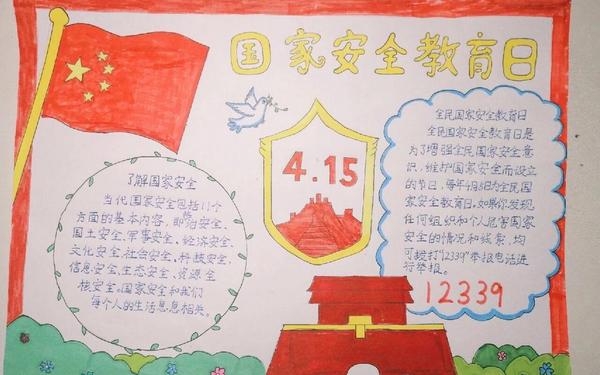 国家安全教育日
4.15
了解国家安全
当代国家安全包括11个
方面的基本内容,即安全、
国土安全、军事安全、经济安全、
文化安全、社会安全、科技安全、
信息安全、生态安全、资源全、
核安全。国家安全和我们
每个人的生活息息相关。
全民国家安全教育日
全民国家安全教育日是
为了增强全民国家安全意
识,维护国家安全而设立
的节日,每年4月15日为全民国
家安全教育日,如果你发现
任何组织和个人危害国家
安全的情况和线索,均
可拨打"12339"举报电话进
行举报。
12339